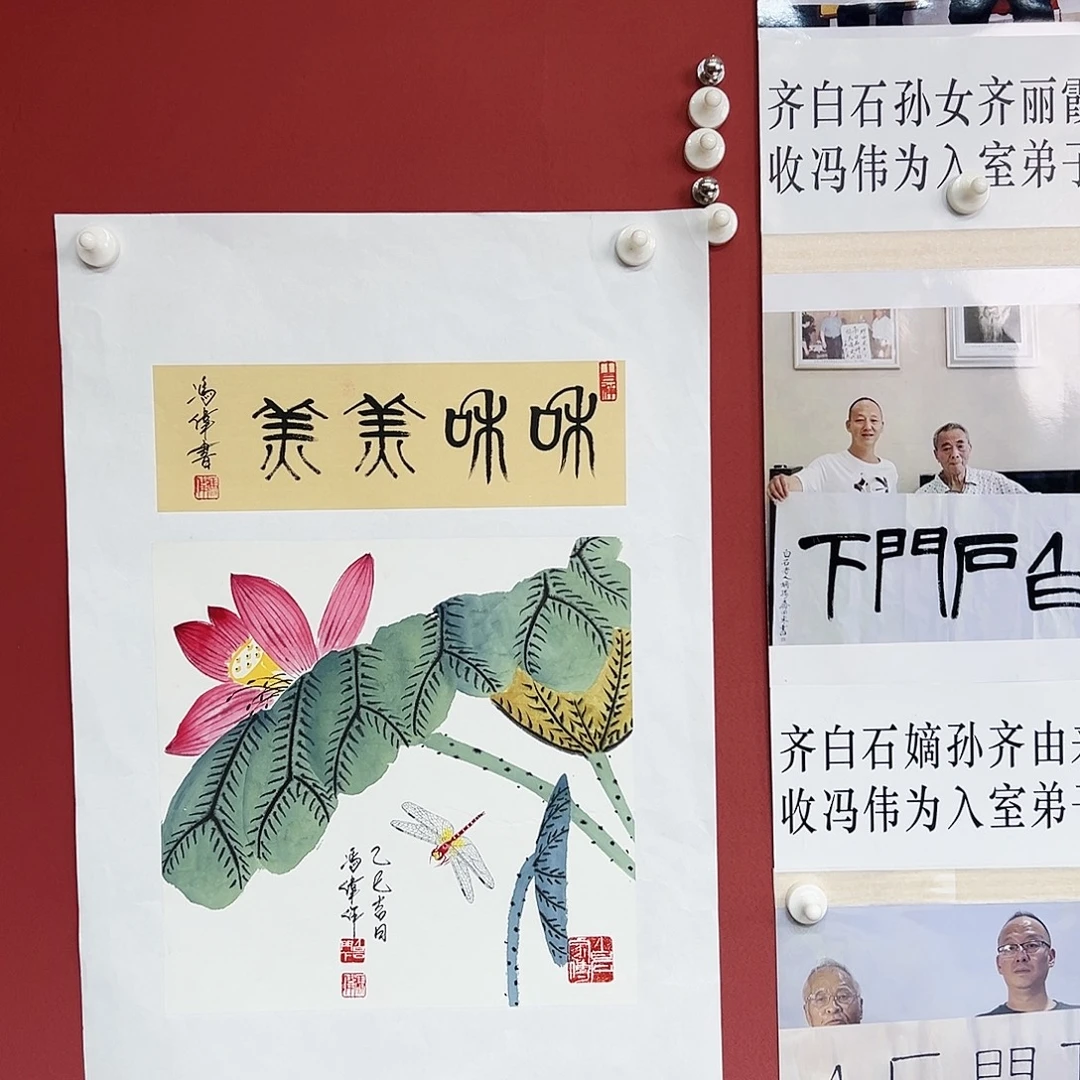 和和美美
馮偉書
乙巳吉日
馮偉作
齐白石孙女齐丽霞
收冯伟为入室弟子
白石門下
齐白石嫡孙齐由来
收冯伟为入室弟子